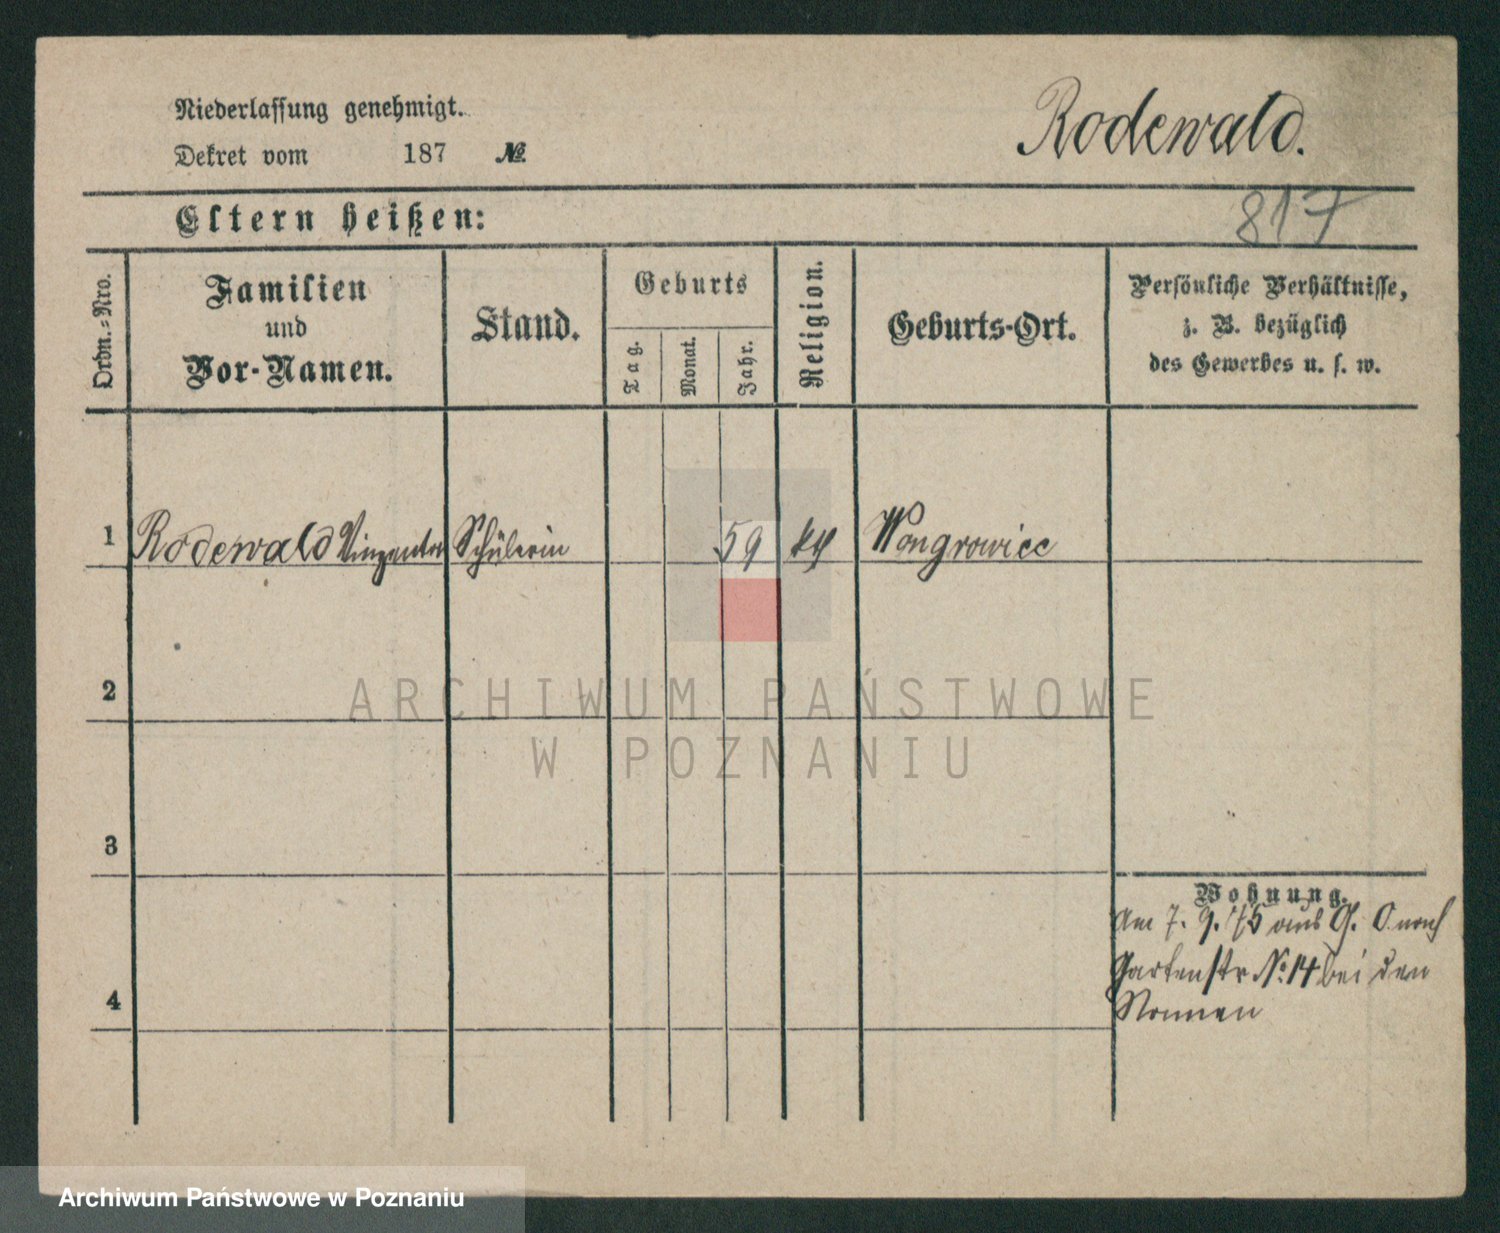 Niederlassung genehmigt.
Dekret vom 187 №
Rodewald.
Eltern heißen:
817
Ordn.-Nro.
Familien
und
Vor-Namen.
Stand.
Geburts
Tag.
Monat.
Jahr.
Religion.
Geburts-Ort.
Persönliche Verhältnisse,
z. B. bezüglich
des Gewerbes u. s. w.
1 Rodewald Vinzenta Schülerin 59 kth Wongrowiec
2
3
4
Wohnung.
Am 7. 9. 75 aus G. O. nach
Gartenstr No. 14 bei den
Nonnen
ARCHIWUM PAŃSTWOWE
W POZNANIU
Archiwum Państwowe w Poznaniu